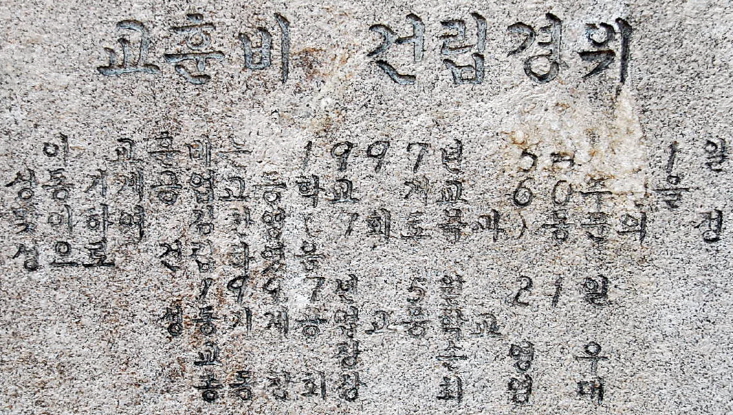 교훈비 건립경위
이 교훈대는 1997년 5月 1일
성동기계공업고등학교 개교 60주 을
맞이하여 7회토목과) 동문의 정
성으로 건립하였음
1997년 5월 21일
성동기계공업고등학교
교 장 손 영 우
총동창회장 최 대